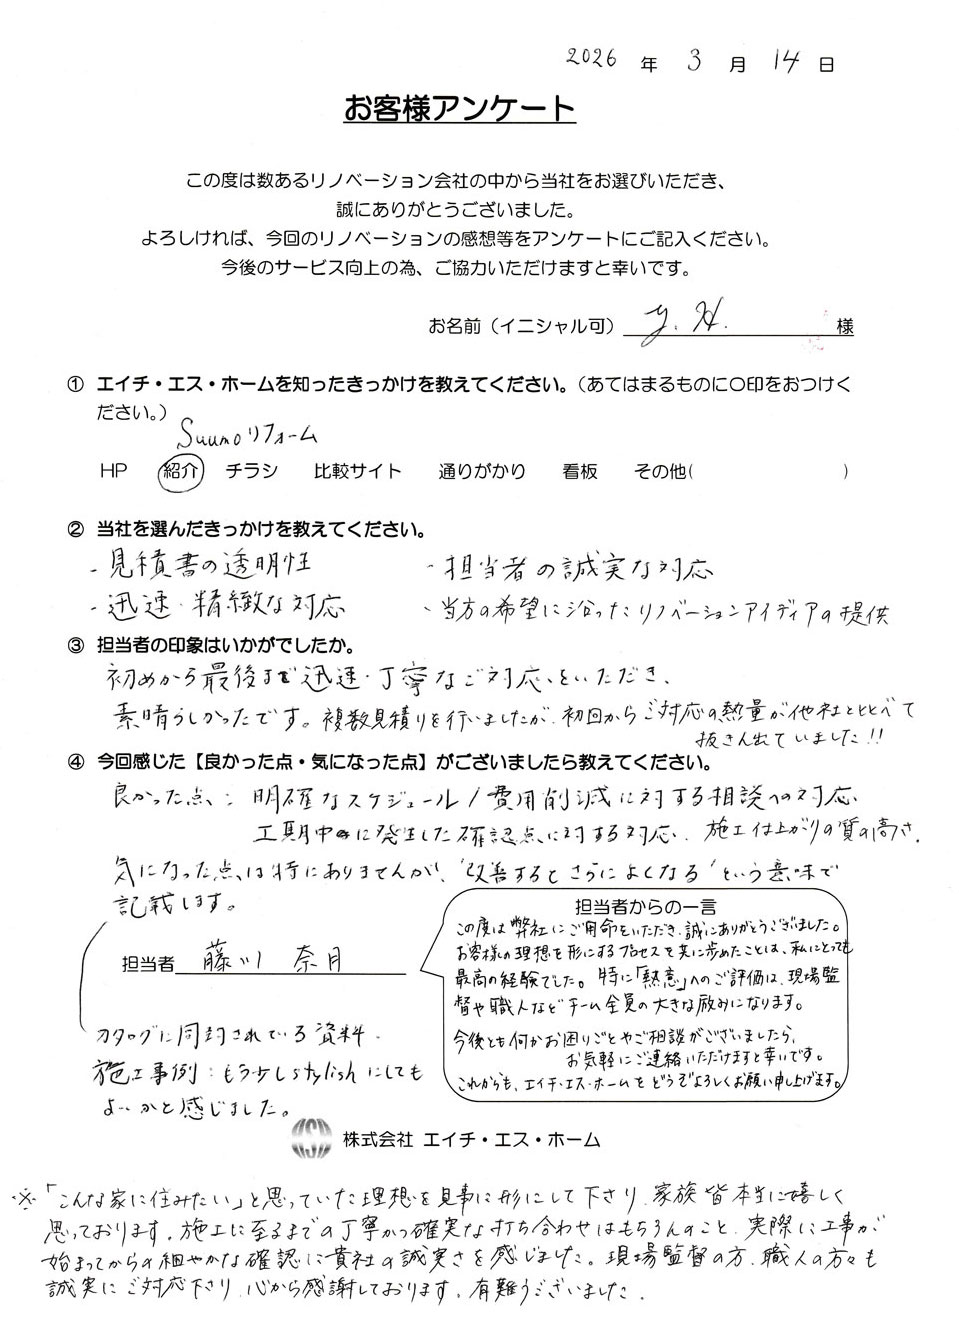 2026 年 3 月 14 日
お客様アンケート
この度は数あるリノベーション会社の中から当社をお選びいただき、
誠にありがとうございました。
よろしければ、今回のリノベーションの感想等をアンケートにご記入ください。
今後のサービス向上の為、ご協力いただけますと幸いです。
お名前（イニシャル可） Y. H. 様
① エイチ・エス・ホームを知ったきっかけを教えてください。（あてはまるものに○印をおつけく
ださい。）
Suumoリフォーム
HP 紹介 チラシ 比較サイト 通りがかり 看板 その他( )
② 当社を選んだきっかけを教えてください。
・見積書の透明性 ・担当者の誠実な対応
・迅速・精緻な対応 ・当方の希望に沿ったリノベーションアイディアの提供
③ 担当者の印象はいかがでしたか。
初めから最後まで迅速・丁寧なご対応をいただき、
素晴らしかったです。複数見積りを行いましたが、初回からご対応の熱量が他社とくらべて
抜きん出ていました!!
④ 今回感じた【良かった点・気になった点】がございましたら教えてください。
良かった点：明確なスケジュール/費用削減に対する相談への対応
工期中に発生した確認点に対する対応、施工仕上がりの質の高さ.
気になった点は特にありませんが、"改善するとさらによくなる"という意味で
記載します。
担当者 藤川 奈月
カタログに同封されている資料・
施工事例：もう少しstylishにしても
よいかと感じました。
担当者からの一言
この度は弊社にご用命をいただき、誠にありがとうございました。
お客様の理想を形にするプロセスを共に歩めたことは、私にとっても
最高の経験でした。特に「熱意」へのご評価は、現場監
督や職人などチーム全員の大きな励みになります。
今後とも何かお困りごとやご相談がございましたら、
お気軽にご連絡いただけますと幸いです。
これからも、エイチ・エス・ホームをどうぞよろしくお願い申し上げます。
HSH 株式会社 エイチ・エス・ホーム
※「こんな家に住みたい」と思っていた理想を見事に形にして下さり、家族皆本当に嬉しく
思っております。施工に至るまでの丁寧かつ確実な打ち合わせはもちろんのこと、実際に工事が
始まってからの細やかな確認に貴社の誠実さを感じました。現場監督の方、職人の方々も
誠実にご対応下さり、心から感謝しております。有難うございました.